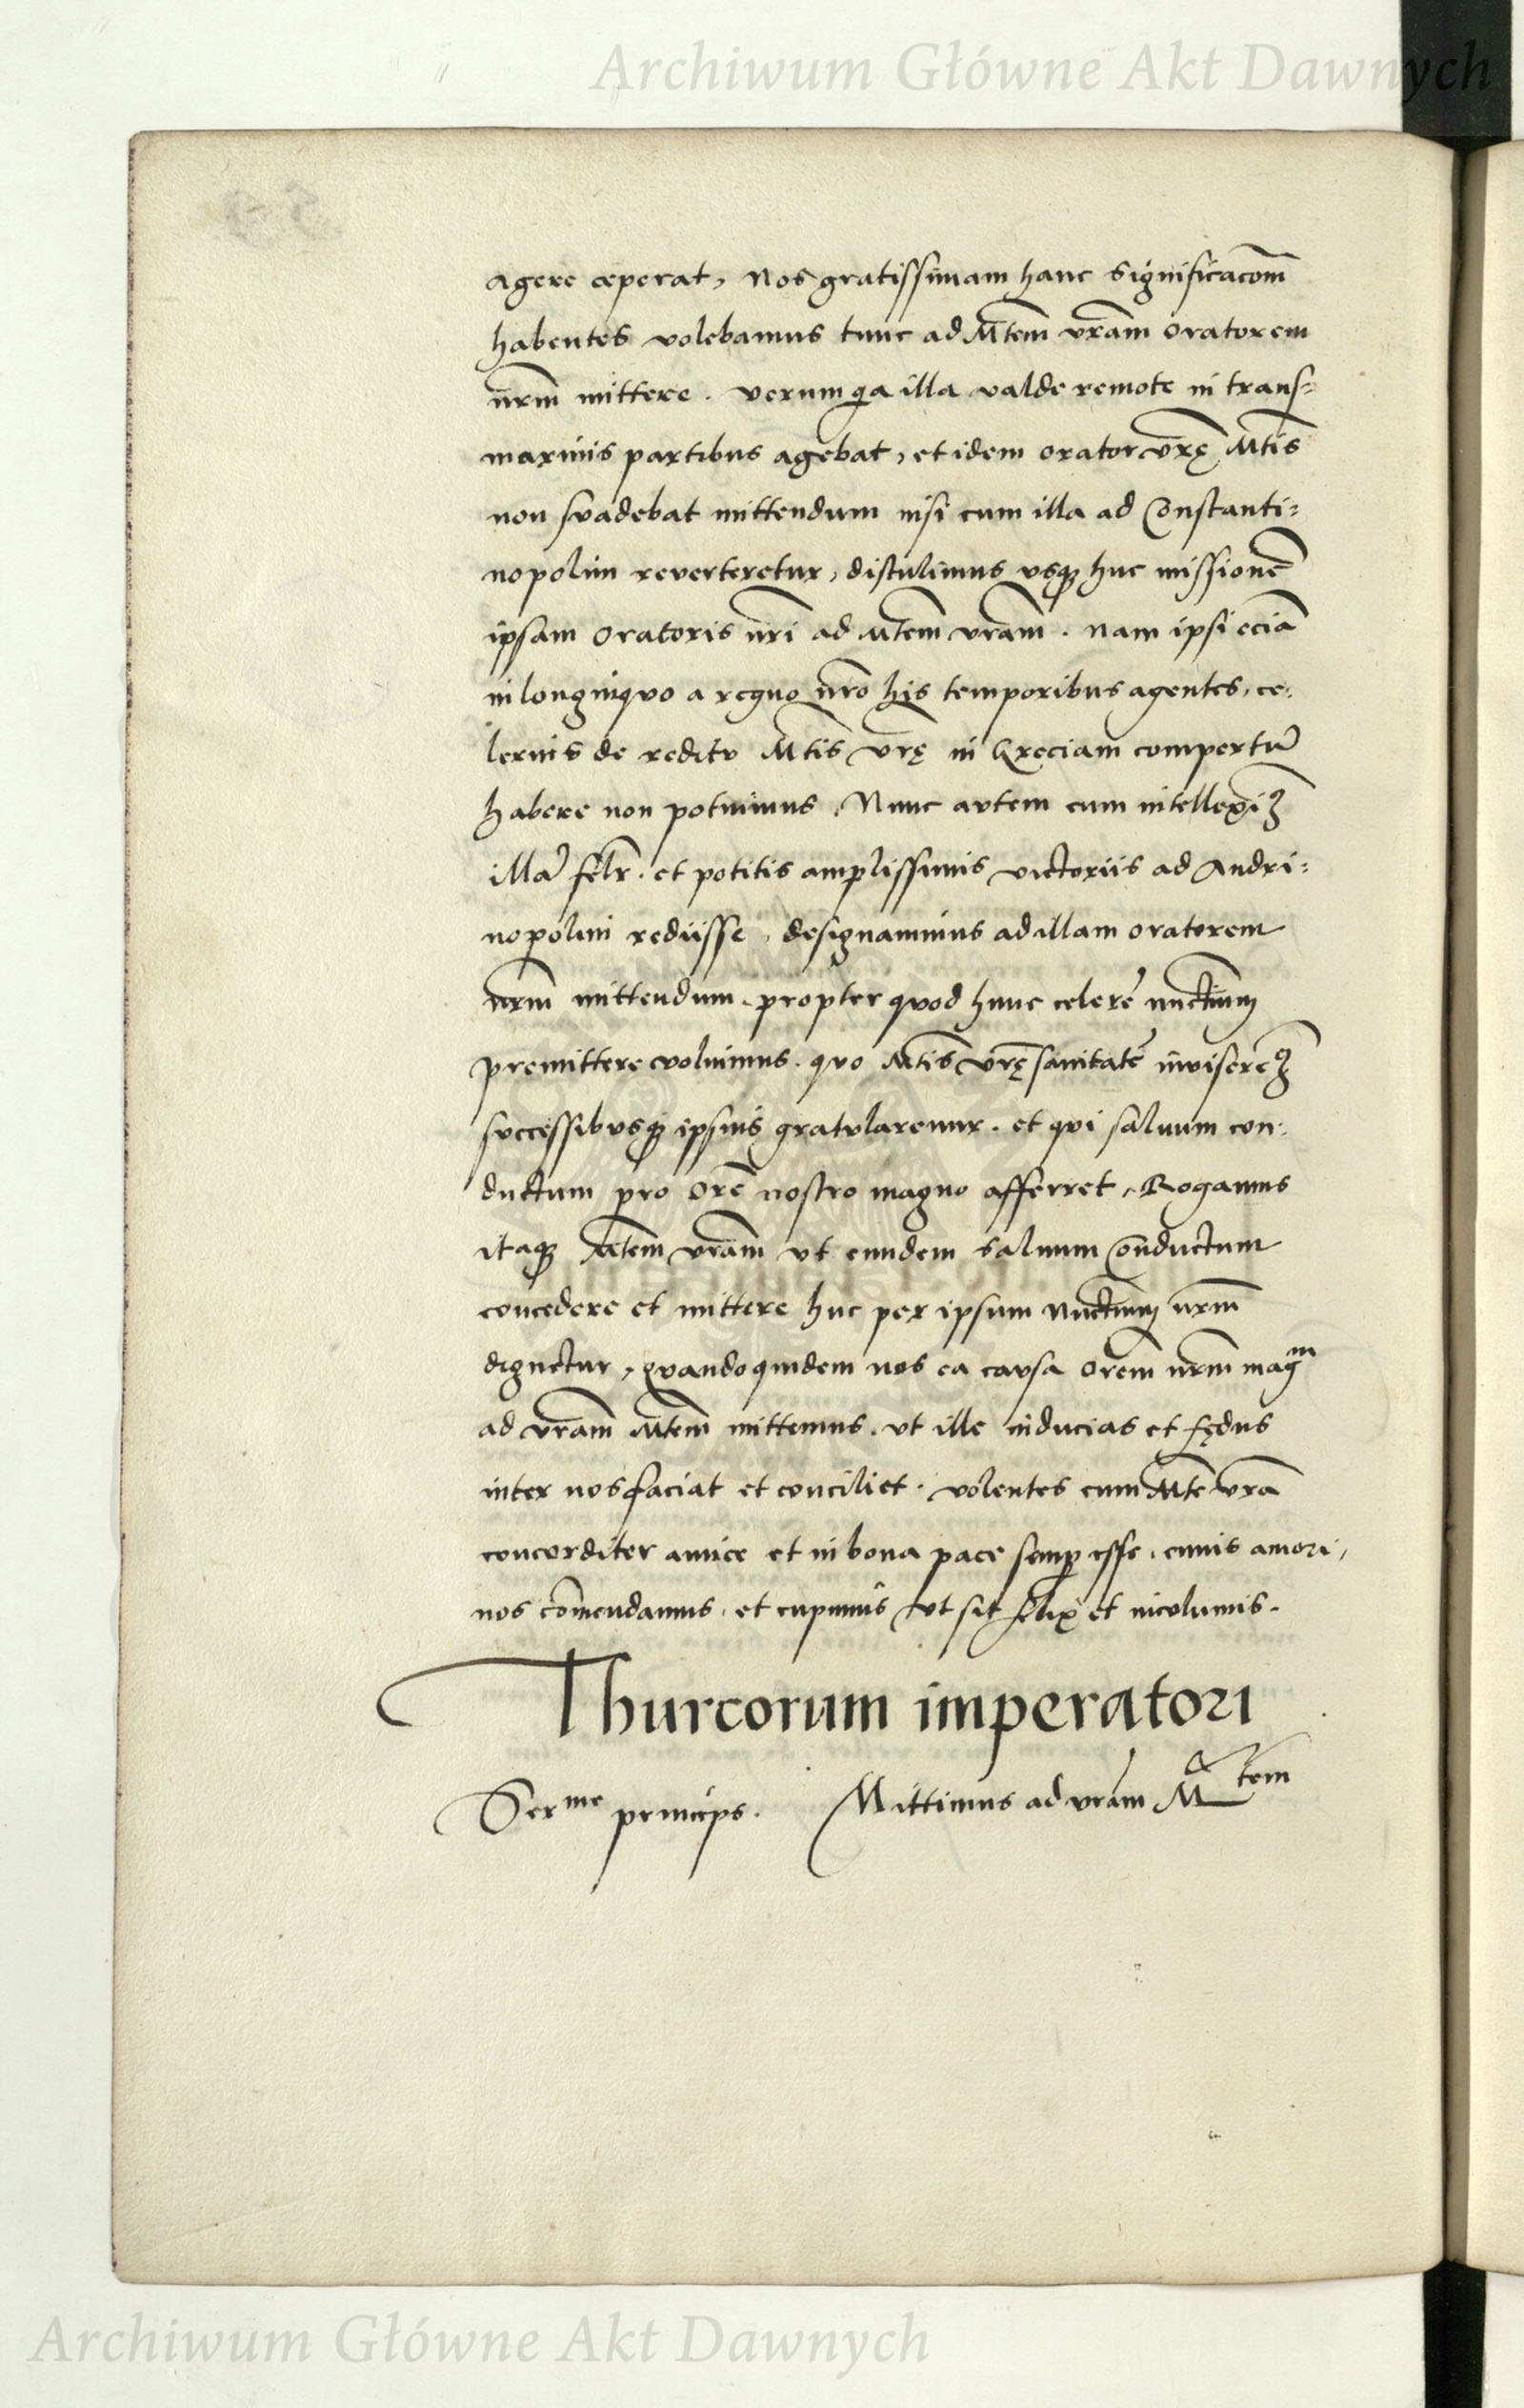 Archiwum Główne Akt Dawnych
agere ceperat, Nos gratissimam hanc significacōm
habentes volebamus tunc ad Mtēm vrām oratorem
nrm̄ mittere. verum qa illa valde remote in trans=
marinis partibus agebat, et idem orator vrę̄ Mtīs
non svadebat mittendum nisi cum illa ad Constanti=
nopolim reverteretur, distulimus vsq huc missionē
ipsam oratoris nr̄i ad Mtēm vrām. nam ipsi eciā
in longinqvo a regno nrō his temporibus agentes, ce=
lerius de reditv Mtīs vrę̄ in Greciam compertū
habere non potuimus. Nunc avtem cum intelleximꝫ
illā felr̄. et potitis amplissimis victoriis ad Andri=
nopolim rediisse, designavimus ad illam oratorem
nrm̄ mittendum. propter qvod hunc celerē nuctium
premittere voluimus. qvo Mtīs vrę̄ sanitatē inviserēꝫ
svccessibvsq ipsius gratvlaremur. et qvi salvum con=
ductum pro orē nostro magno afferret, Rogamus
itaq Mtēm vrām vt eundem salvum conductum
concedere et mittere huc per ipsum nuctium nrm̄
dignetur, qvandoquidem nos ea cavsa orēm nrm̄ magm
ad vrām Mtēm mittemus. vt ille inducias et fędus
inter nos faciat et conciliet. volentes cum Mtē vrā
concorditer amice et in bona pace semp esse. cuius amori,
nos cōmendamus. et cupimus vt sit felix et incolumis.
Thurcorum imperatori
Serme princeps. Mittimus ad vrām Mtem
Archiwum Główne Akt Dawnych